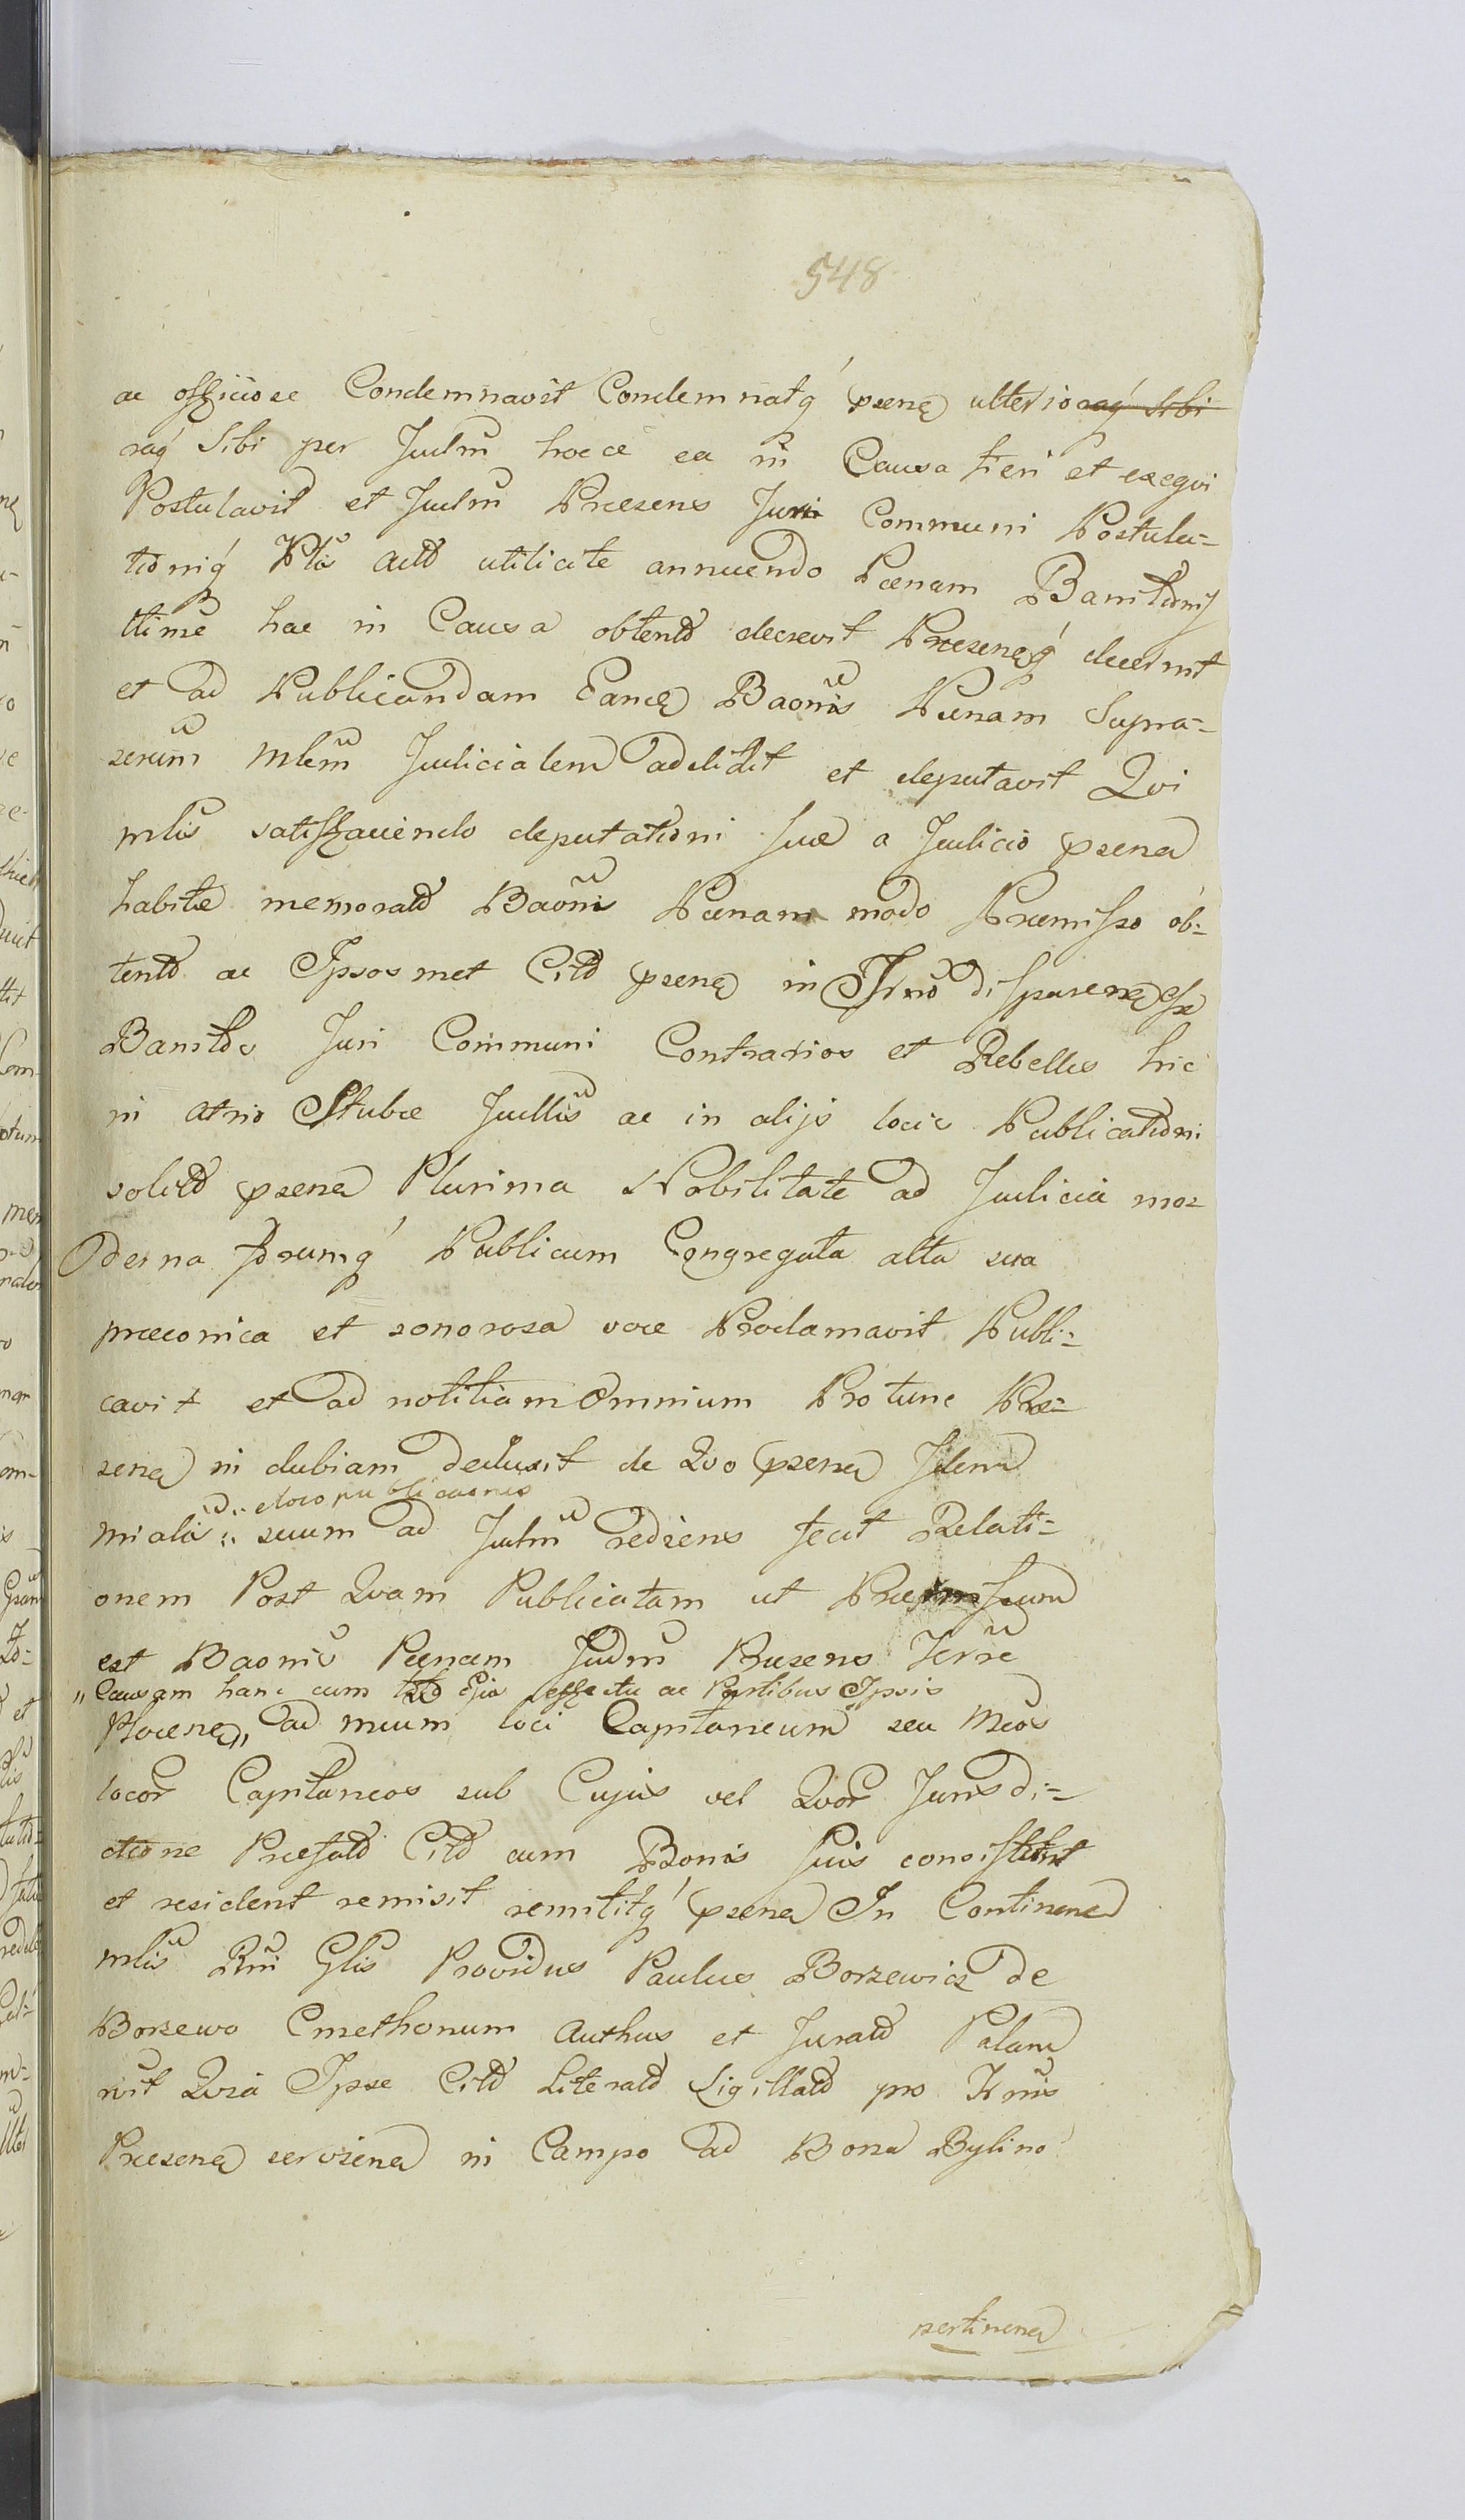 548
ac officiose Condemnavit Condemnatq́ psenę ulterioraq́ sibi
raq́ Sibi per Judm hocce ea in Causa fieri et exeqvi
Postulavit et Judm Præsens Juri Communi Postula-
tioniq́ Ptis actd utilicite annuendo Pœnam Banitionis
ttime hac in Causa obtentd decrevit Præsenęq́ decernit
et ad Publicandam Eancę Baonis Pœnam Supra-
serium Mlem Judicialem addidit et deputavit Qvi
mlis satisfaciendo deputationi suæ a Judicio psena
habitæ memoratd Baonis Pœnam modo Præmisso ob-
tentd ac Ipsos met Citd psenę in Trno disparenę esse
Banitos Juri Communi Contrarios et Rebelles hic
in atrio Stubæ Judlis ac in alijs locis Publicationi
solitd psena Plurima Nobilitate ad Judicia mo-
derna forumq́ Publicum Congregata alta sua
præconica et sonorosa voce Proclamavit Publi-
cavit et ad notitiam Omnium Protunc Præ-
senę in dubiam deduxit de Qvo psena Idem
e loco publicaonis
miālis suum ad Judm rediens fecit Relati-
onem Post Qvam Publicatam ut Præmissum
est Baonis Pœnam Judm Præsens Terre
"Causam hanc cum totd Ejus effectu ac Partibus Ipsis
Plocenę" ad meum loci Capitaneum seu Meos
locor Capitaneos sub Cujus vel Qvor Jurisdi-
ctione Præfatd Citd cum Bonis suis consistunt
et resident remisit remititq́ psena In Continend
mlis Rni Glis Providus Paulus Borzewicz de
Borzewo Cmethonum Authus et Juratd Palam
rvit Qvia Ipse Citd Literatd Sigillatd pro Trnis
Præsenę serviend in Campo ad Bona Bylino
pertinena